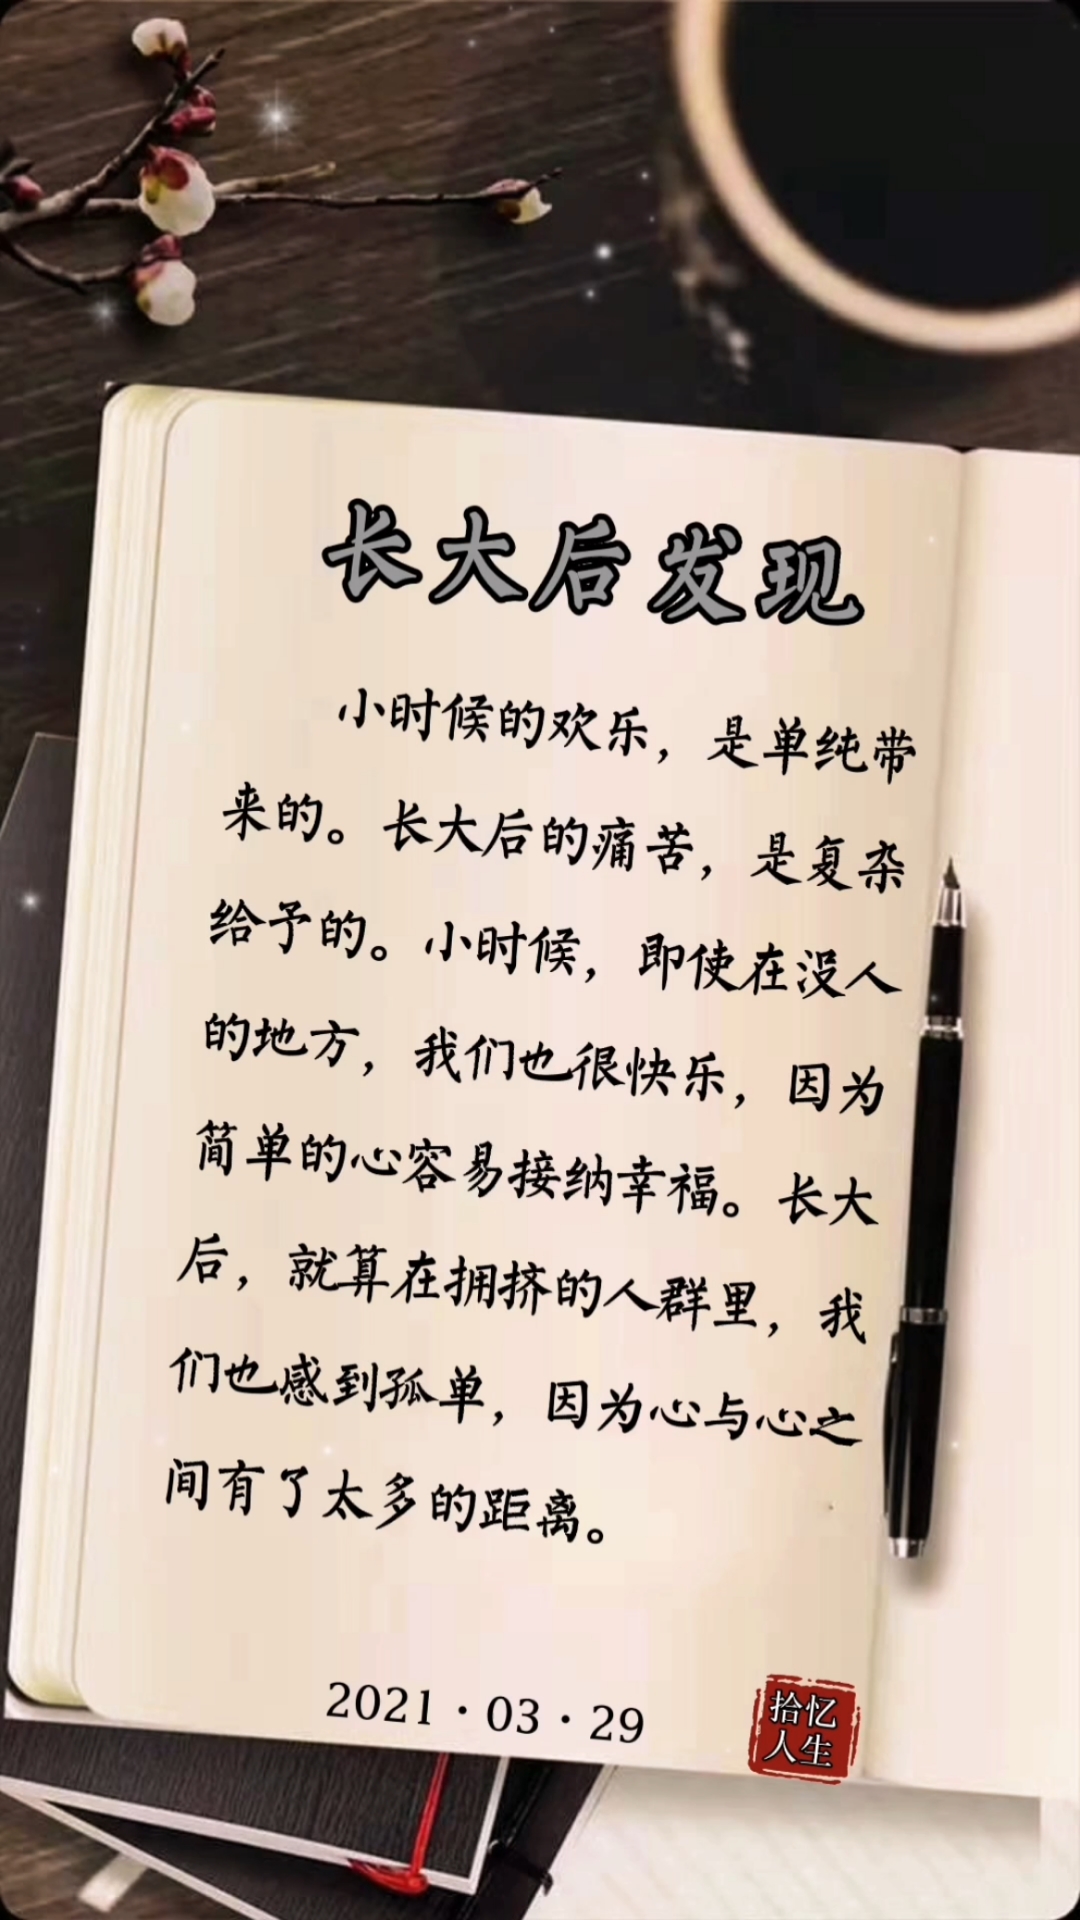 长大后发现
小时候的欢乐，是单纯带
来的。长大后的痛苦，是复杂
给予的。小时候，即使在没人
的地方，我们也很快乐，因为
简单的心容易接纳幸福。长大
后，就算在拥挤的人群里，我
们也感到孤单，因为心与心之
间有了太多的距离。
2021·03·29
拾忆
人生